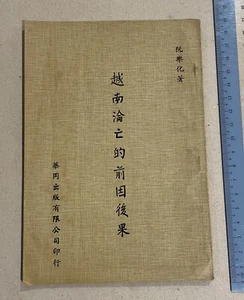 阮樂化著
越南淪亡的前因後果
華岡出版有限公司印行